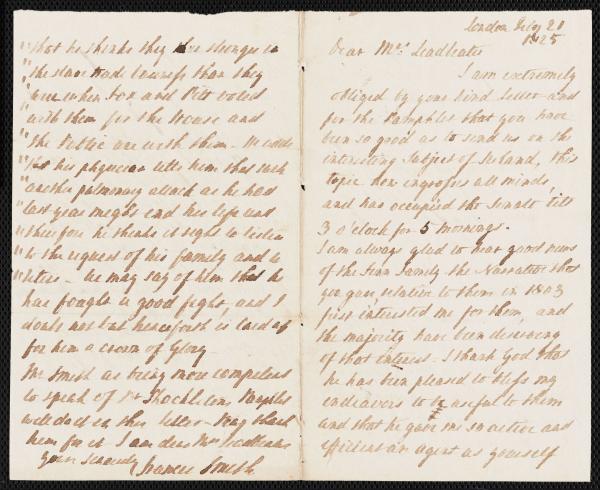 London Feby 21
1825
Dear Mrs. Leadbeater
I am extremely
obliged by your kind Letter and
for the Pamphlet that you have
been so good as to send us on the
interesting Subject of Ireland, this
topic now ingrosses all minds,
and has occupied the Senate till
3 o'clock for 5 mornings.
I am always glad to hear good news
of the Finn Family the Narrative that
you gave relative to them in 1803
first interested me for them, and
the majority have been deserving
of that interest. I thank God that
he has been pleased to bless my
endeavors to be useful to them
and that he gave me so active and
efficient an agent as yourself
" that he thinks they are stronger in
" the slave trade business than they
" were when Fox and Pitt voted
" with them for the House and
" the Public are with them - He adds
" that his physician tells him that such
" another pulmonary attack as he had
" last year might end his life and
" therefore he thinks it right to listen
" to the request of his family and to
" retire - we may say of him that he
has fought a good fight, and I
doubt not but henceforth is laid up
for him a crown of Glory
Mr Smith as being more competent
to speak of Dr
well does in this letter - Pray thank
him for it I am dear Mrs Leadbeater
yours sincerely Frances Smith